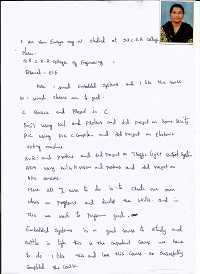 I am from Eluru my.. studied at SIR.C.R.R College
SIR C.R.R College of Engineering.
Branch - EIE
Here i joined Embedded Systems and I like this course
so i joined classes and is good.
C Basics and Project in C
8051 using Keil and proteus and did project on home security
PIC using PIC C Compiler and did project on Electronic
voting machine
AVR and proteus and did Project on Traffic light Control System
ARM using Keil uVision and proteus and did project on
ADC
Here all I have to do is to check our own
ideas on programs and build the skills and in
this we need to perform good.
Embedded Systems is a good course to study and
settle in life this is the important course we have
to do I like this and love this course so successfully
completed the course.